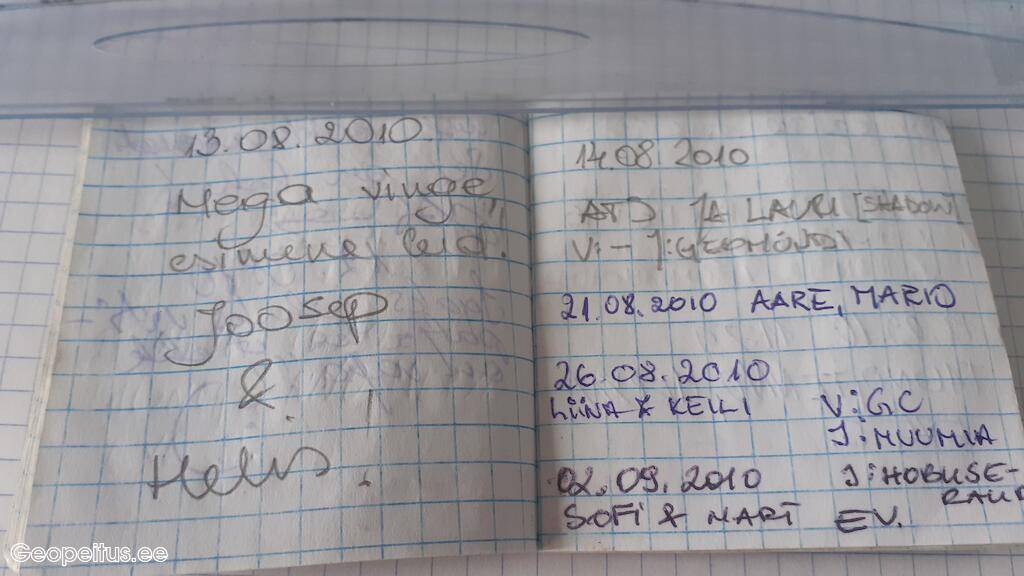 13.08.2010
Mega vinge,
esimene leid.
Joosep
&
!
14.08.2010
JA LAURI [SHADOW]
V: - J:GEOMÜNDI
21.08.2010 AARE, MARIO
26.08.2010
LiiNA & KEILI V:GC
J:MUUMIA
02.09.2010 J:HOBUSE-
RAUD
SOFi & MART EV.
Geopeitus.ee